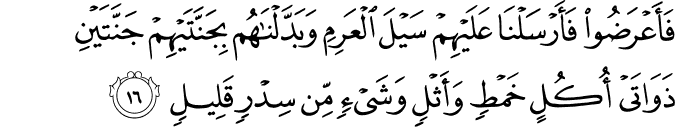 فَأَعۡرَضُواْ فَأَرۡسَلۡنَا عَلَيۡهِمۡ سَيۡلَ ٱلۡعَرِمِ وَبَدَّلۡنَٰهُم بِجَنَّتَيۡهِمۡ جَنَّتَيۡنِ
ذَوَاتَيۡ أُكُلٍ خَمۡطٖ وَأَثۡلٖ وَشَيۡءٖ مِّن سِدۡرٖ قَلِيلٖ ١٦